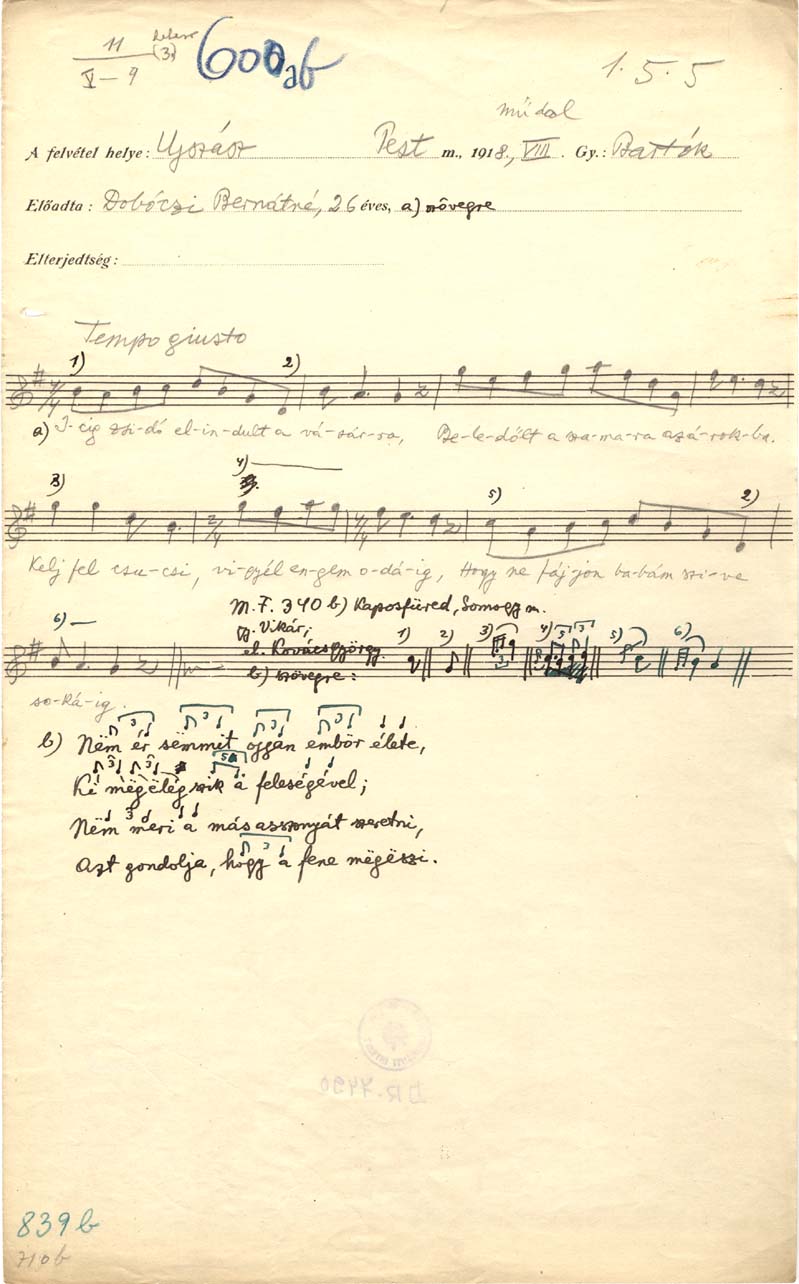 11
V—9
(3)
600ab
1. 5. 5
műdal
A felvétel helye: Ujszász Pest m., 1918., VIII. Gy.: Bartók
Előadta: Dobóczi Bernátné, 26 éves, a) szövegre
Elterjedtség:
Tempo giusto
1) 2)
a) I-cig zsi-dó el-in-dult a vá-sár-ra, Be-le-dőlt a sza-ma-ra az á-rok-ba.
3) 4) 5) 2)
Kelj fel csu-csi, vi-gyél en-gem o-dá-ig, Hogy ne fáj-jon ba-bám szi-ve
M. F. 340 b) Kaposfüred, Somogy m.
gy. Vikár;
6) el. Kovács György. 1) 2) 3) 4) 5) 6)
b) szövegre:
so-ká-ig.
b) Nëm ér sëmmit oggyan embör élete,
Ki mëgelégszik a feleségével;
Nëm meri a más asszonyát szeretni,
Azt gondolja, hogy a fene mëgëszi.
DR. 7490
839b
710b